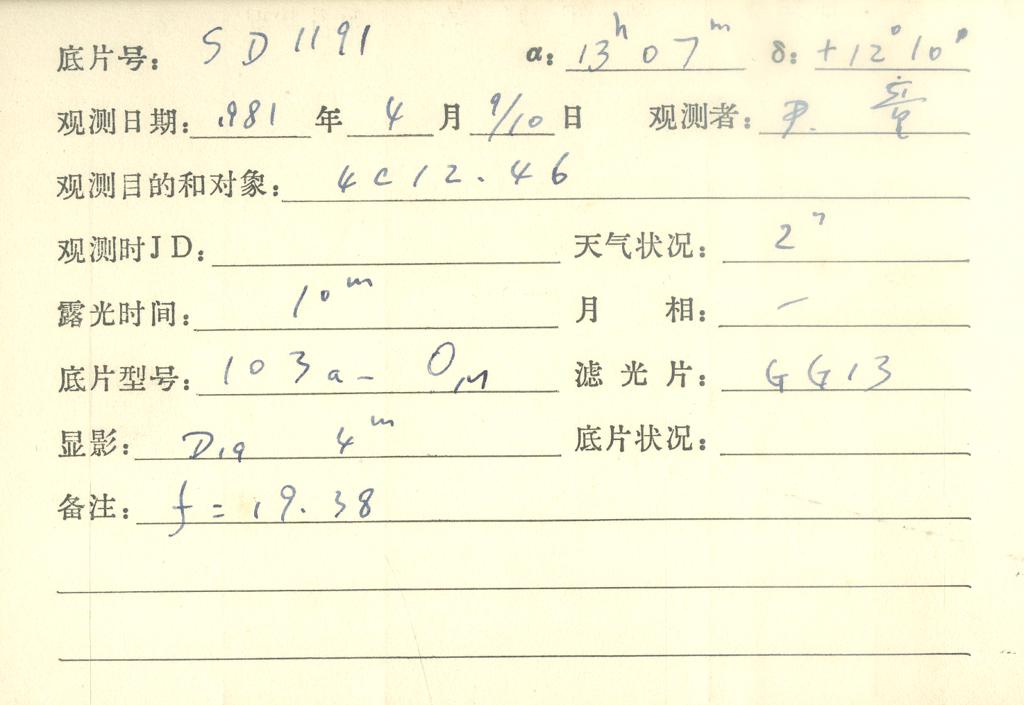 底片号: SD1191 α: 13ʰ07ᵐ δ: +12°10′
观测日期: 1981年4月9/10日 观测者:
观测目的和对象: 4C12.46
观测时JD: 天气状况: 2"
露光时间: 10ᵐ 月 相: —
底片型号: 103a-O 滤光片: GG13
显影: D19 4ᵐ 底片状况:
备注: f=19.38